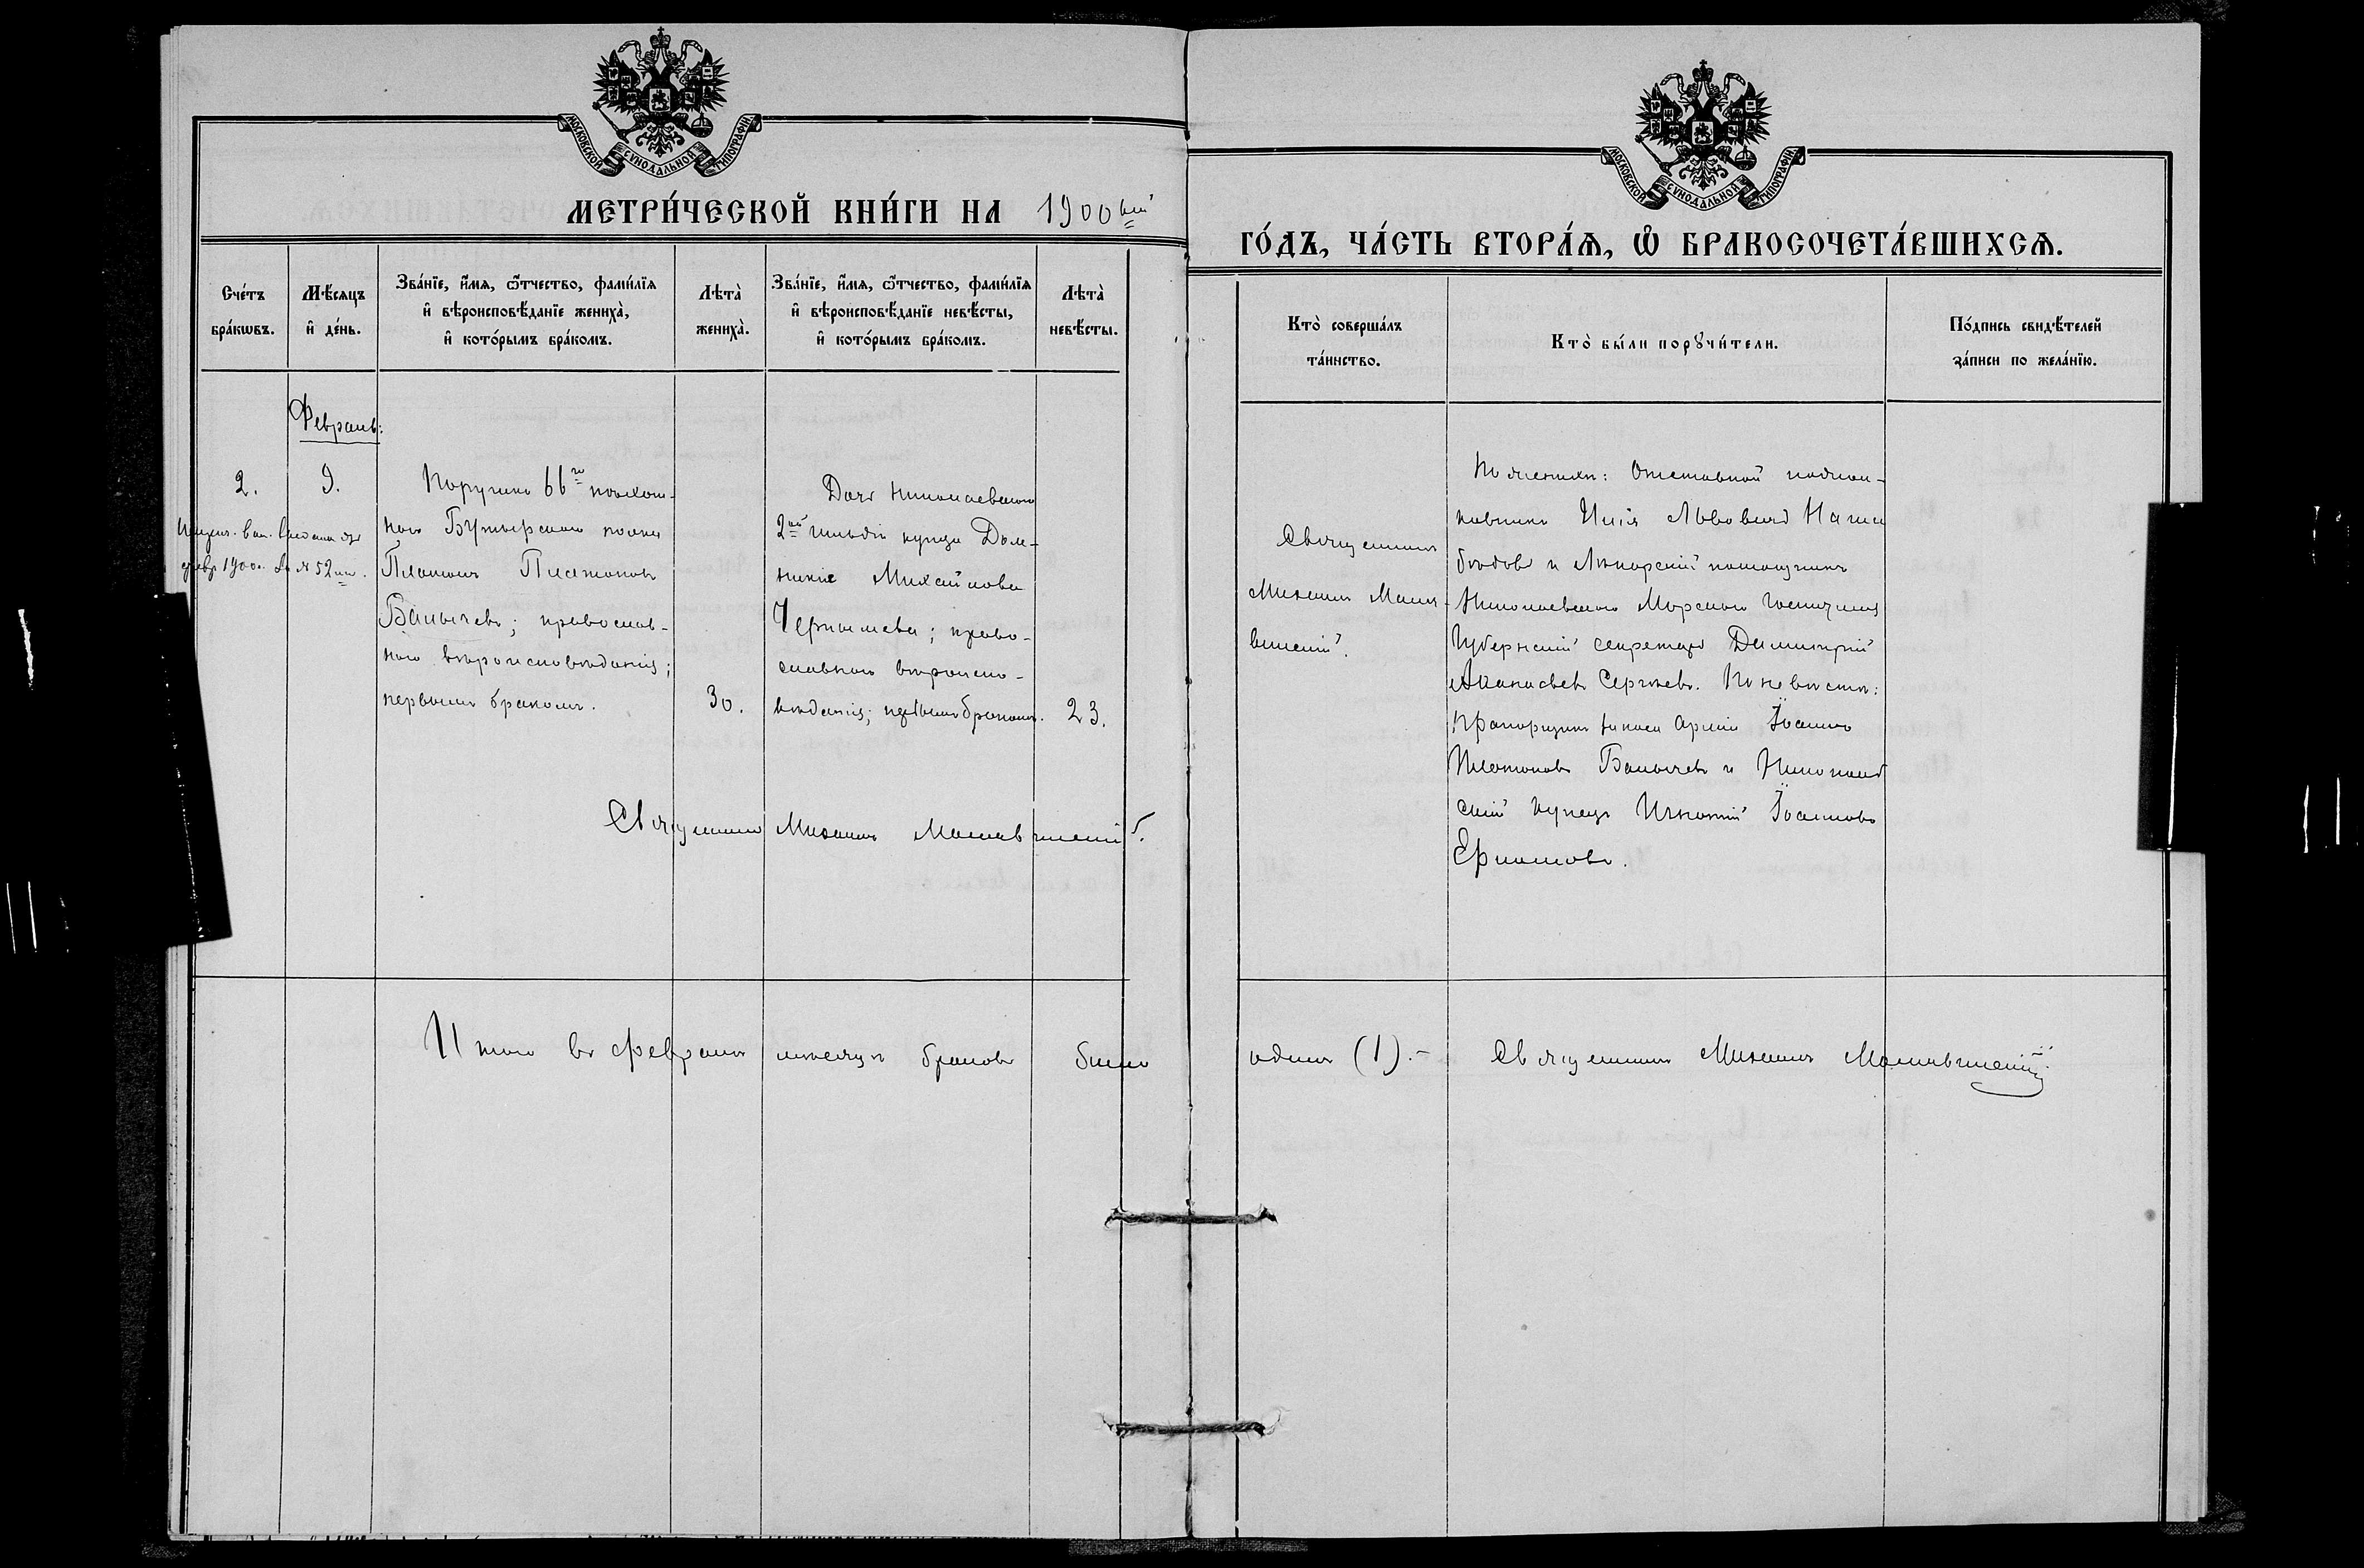 МОСКОВСКОЙ СѴНОДАЛЬНОЙ ТИПОГРАФІИ
МЕТРИ́ЧЕСКОЙ КНИ́ГИ НА 1900ый
Сче́тъ бра́кѡвъ.
Мѣ́сяцъ и҆ де́нь.
Зва́нїе, и҆́мя, ѻ҆́тчество, фами́лїя и҆ вѣроисповѣ́данїе жениха̀, и҆ кото́рымъ бра́комъ.
Лѣта̀ жениха̀.
Зва́нїе, и҆́мя, ѻ҆́тчество, фами́лїя и҆ вѣроисповѣ́данїе невѣ́сты, и҆ кото́рымъ бра́комъ.
Лѣта̀ невѣ́сты.
Февраль:
2.
9.
февр. 1900 г. № 52
Поручикъ 66го пѣхот-
наго Бутырскаго полка
Платонъ Платоновъ
Балычевъ; православ-
наго вѣроисповѣданія;
первымъ бракомъ.
30.
Дочь Николаевскаго
2ой гильдіи купца Дом-
никіе Михайлова
Чернышева; право-
славнаго вѣроиспо-
вѣданія; первымъ бракомъ.
23.
Священникъ Михаилъ
Итого въ февралѣ мѣсяцѣ браковъ было
МОСКОВСКОЙ СѴНОДАЛЬНОЙ ТИПОГРАФІИ
ГО́ДЪ, ЧА́СТЬ ВТОРА́Ѧ, Ѡ҆ БРАКОСОЧЕТА́ВШИХСѦ.
Кто̀ соверша́лъ та́инство.
Кто̀ бы́ли порꙋчи́тели.
По́дпись свидѣ́телей за́писи по жела́нїю.
Священникъ
Михаилъ
По женихѣ: Отставной подпол-
ковникъ Илія Львовичъ
и Лѣкарскій помощникъ
Николаевскаго Морского Госпиталя
Губернскій секретарь Димитрій
Аѳанасьевъ Сергѣевъ. По невѣстѣ:
Прапорщикъ запаса арміи Іоаннъ
Платоновъ Балычевъ и Николаев
скій купецъ Игнатій Іоанновъ
Ермошовъ.
одинъ (1).- Священникъ Михаилъ